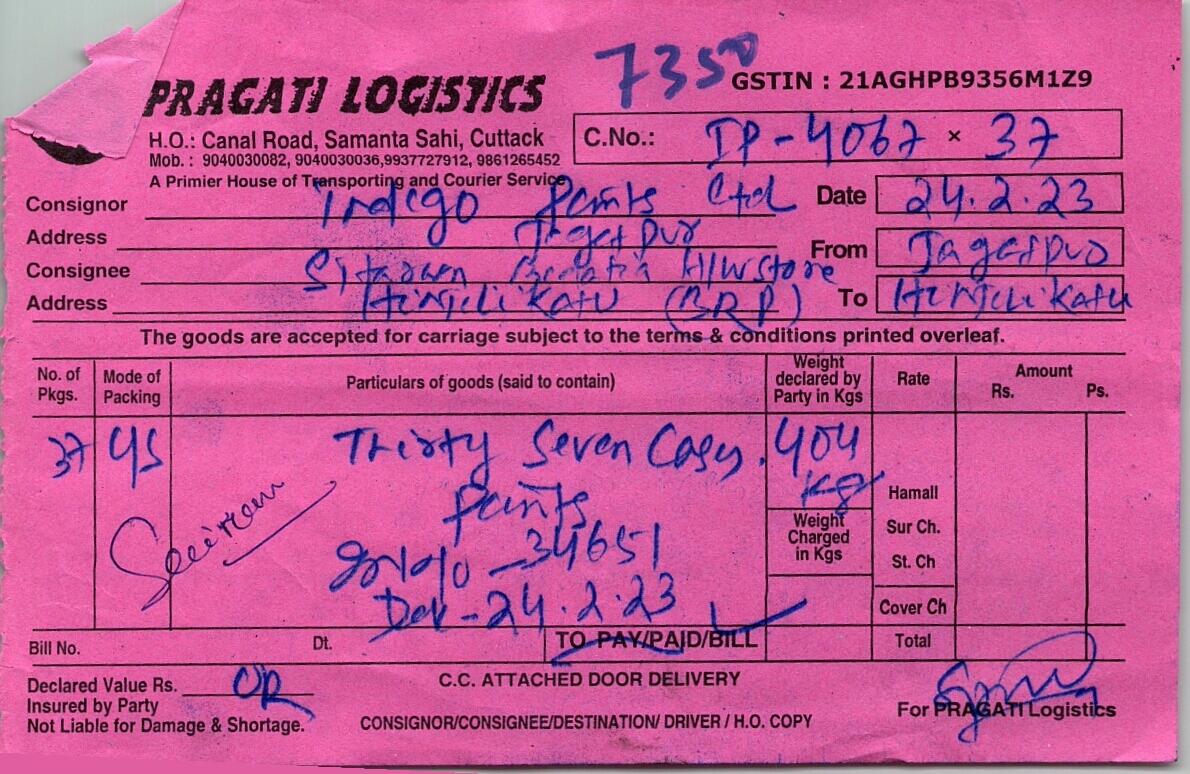 7350
PRAGATI LOGISTICS
GSTIN : 21AGHPB9356M1Z9
H.O.: Canal Road, Samanta Sahi, Cuttack
Mob. : 9040030082, 9040030036,9937727912, 9861265452
A Primier House of Transporting and Courier Service
C.No.: IP-4067 × 37
Consignor Indigo Paints Ltd
Date 24.2.23
Address Jagatpur
From Jagatpur
Consignee Sitaram H/W Store
Address Hinjilikatu (BRP)
To Hinjilikatu
The goods are accepted for carriage subject to the terms & conditions printed overleaf.
No. of Pkgs. Mode of Packing Particulars of goods (said to contain) Weight declared by Party in Kgs Rate Amount Rs. Ps.
37 Thirty Seven Cases. 404 kg
Paints
34651
24.2.23
Weight Charged in Kgs
Hamall
Sur Ch.
St. Ch
Cover Ch
Bill No. Dt. TO PAY/PAID/BILL Total
Declared Value Rs. OR
C.C. ATTACHED DOOR DELIVERY
Insured by Party
Not Liable for Damage & Shortage.
CONSIGNOR/CONSIGNEE/DESTINATION/ DRIVER / H.O. COPY
For PRAGATI Logistics